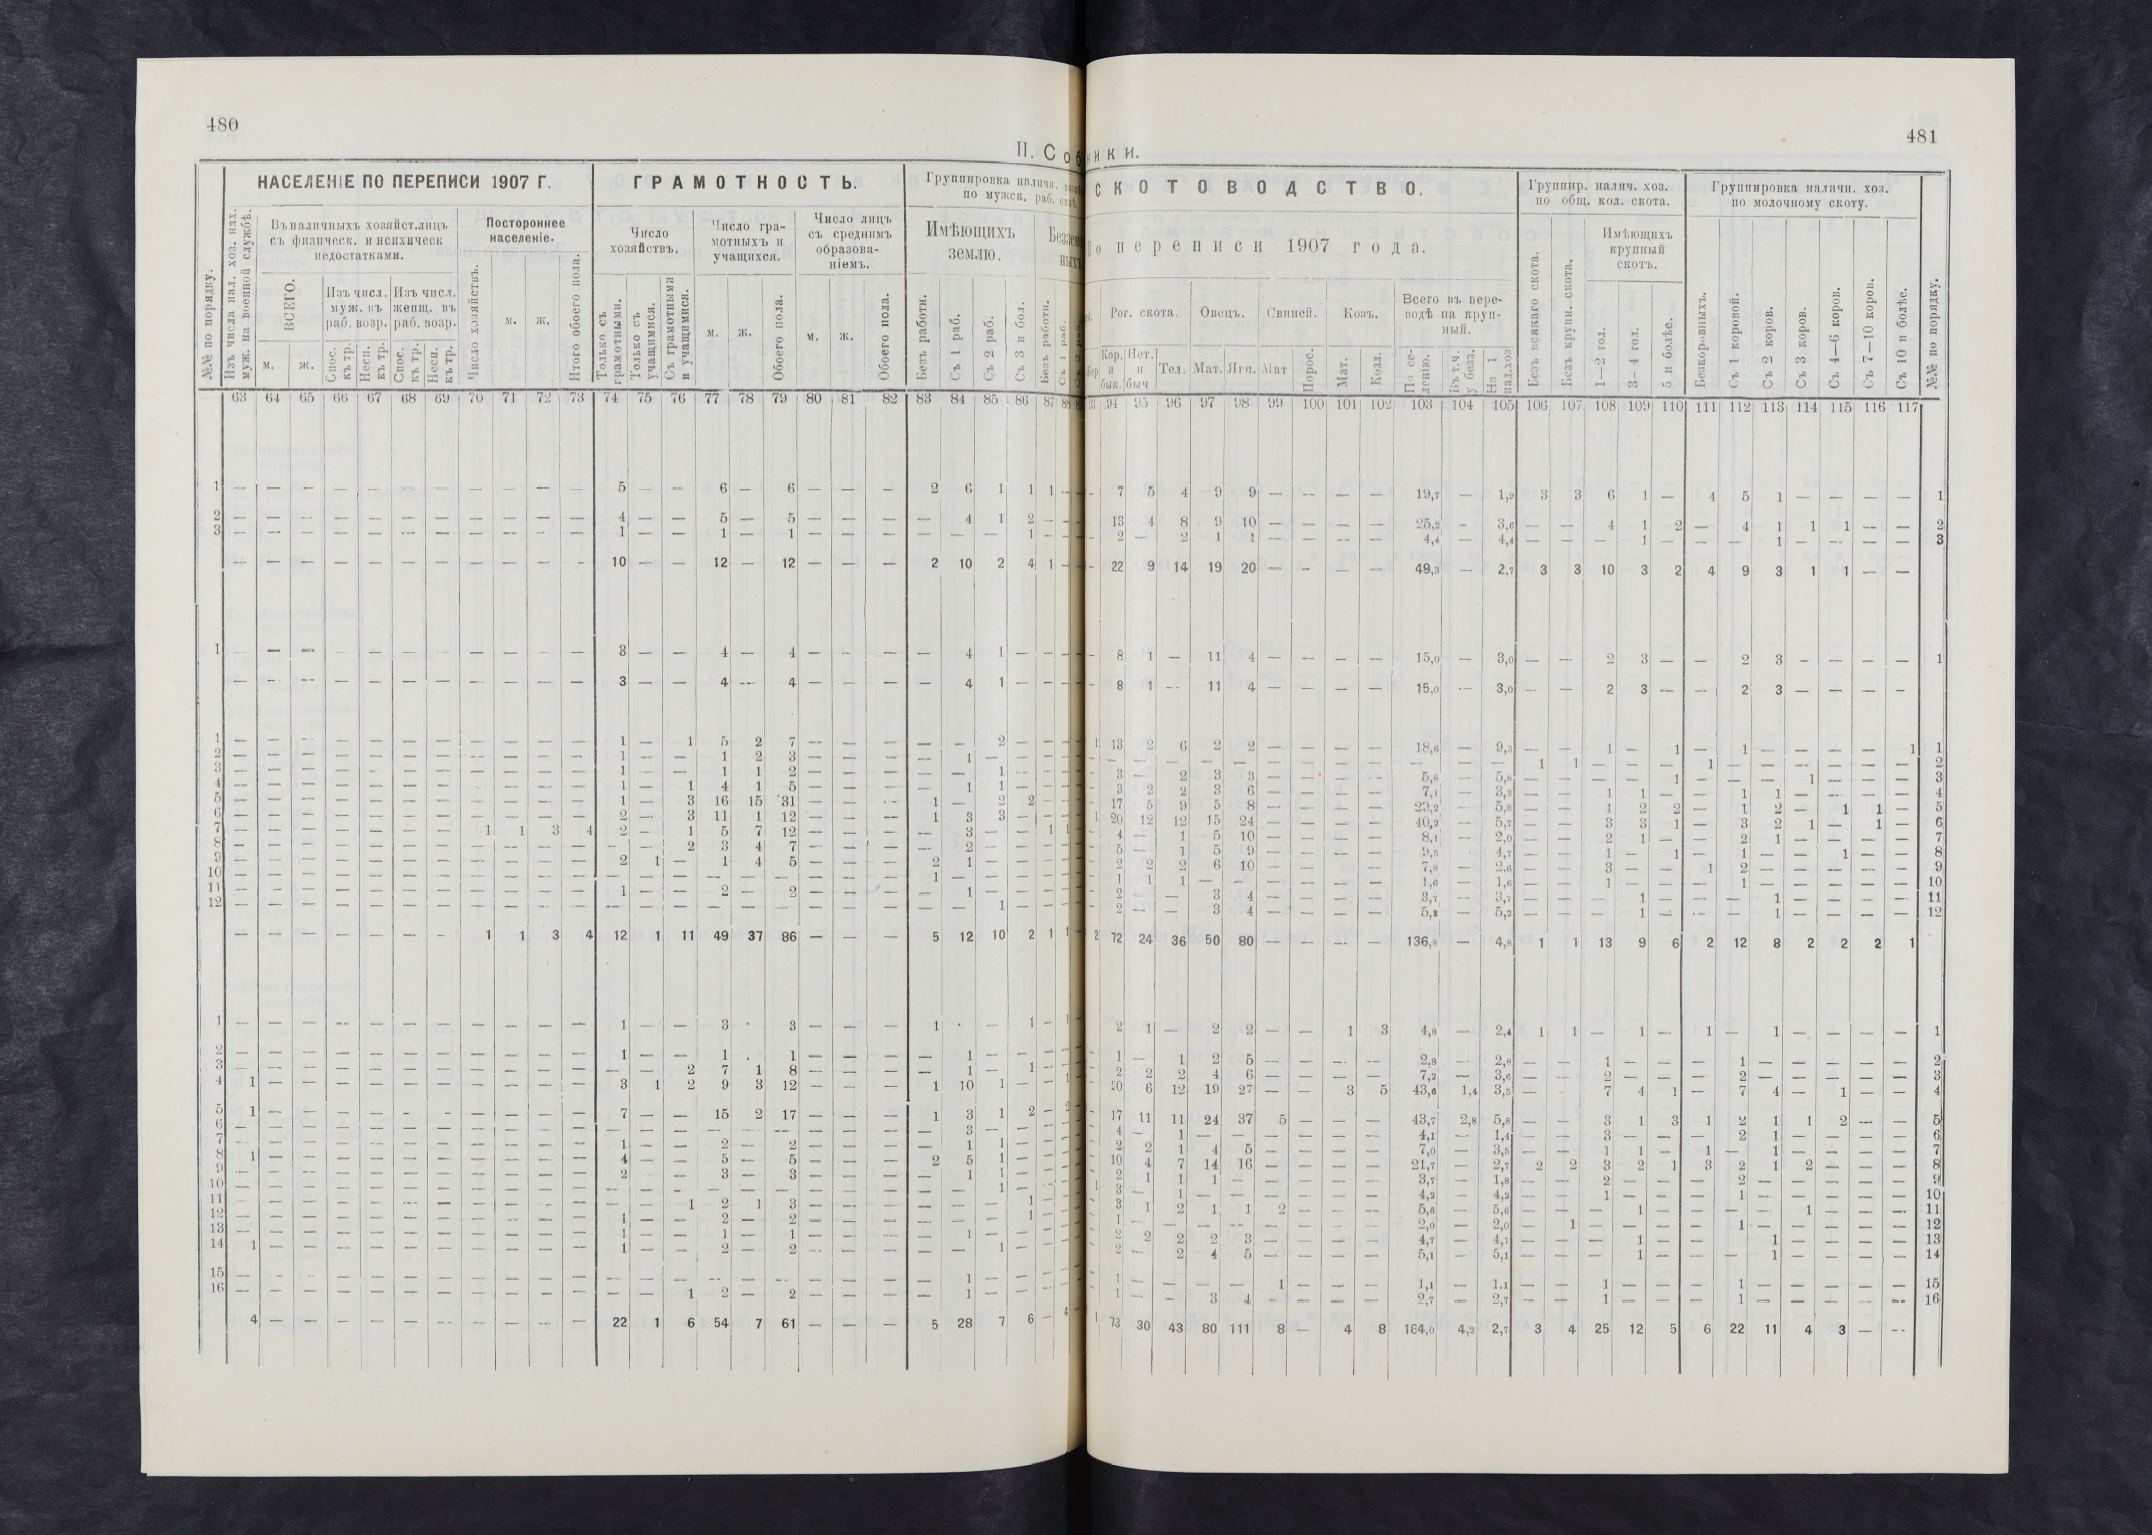 480
481
II. Соб ники.
НАСЕЛЕНІЕ ПО ПЕРЕПИСИ 1907 Г.
ГРАМОТНОСТЬ.
Группировка наличн.
по мужск. раб.
СКОТОВОДСТВО.
Группир. налич. хоз.
по общ. кол. скота.
Группировка наличн. хоз.
по молочному скоту.
№№ по порядку.
Изъ числа нал. хоз. нах.
муж. на военной службѣ.
Въ наличныхъ хозяйст. лицъ
съ физическ. и психическ
недостатками.
Постороннее
населеніе.
Число
хозяйствъ.
Число гра-
мотныхъ и
учащихся.
Число лицъ
съ среднимъ
образова-
ніемъ.
Имѣющихъ
землю.
По переписи 1907 года.
Имѣющихъ
крупный
скотъ.
ВСЕГО.
Изъ числ.
муж. въ
раб. возр.
Изъ числ.
женщ. въ
раб. возр.
м.
ж.
Спос.
къ тр.
Несп.
къ тр.
Спос.
къ тр.
Несп.
къ тр.
Число хозяйствъ.
м.
ж.
Итого обоего пола.
Только съ
грамотными.
Только съ
учащимися.
Съ грамотными
и учащимися.
м.
ж.
Обоего пола.
м.
ж.
Обоего пола.
Безъ работн.
Съ 1 раб.
Съ 2 раб.
Съ 3 и бол.
Безъ работн.
Съ 1 раб.
Рог. скота.
Овецъ.
Свиней.
Козъ.
Всего въ пере-
водѣ на круп-
ный.
Кор.
и
бык.
Нет.
и
быч
Тел.
Мат.
Ягн.
Мат
Порос.
Мат.
Козл.
По се-
ленію.
Въ т. ч.
у безз.
На 1
над.хоз
Безъ всякаго скота.
Безъ крупн. скота.
1—2 гол.
3—4 гол.
5 и болѣе.
Безкоровныхъ.
Съ 1 коровой.
Съ 2 коров.
Съ 3 коров.
Съ 4—6 коров.
Съ 7—10 коров.
Съ 10 и болѣе.
№№ по порядку.
63 64 65 66 67 68 69 70 71 72 73 74 75 76 77 78 79 80 81 82 83 84 85 86 87 88
94 95 96 97 98 99 100 101 102 103 104 105 106 107 108 109 110 111 112 113 114 115 116 117
1 — — — — — — — — — — — 5 — — 6 — 6 — — — 2 6 1 1 1 — — 7 5 4 9 9 — — — — 19,7 — 1,9 3 3 6 1 — 4 5 1 — — — — 1
2 — — — — — — — — — — — 4 — — 5 — 5 — — — — 4 1 2 — — — 13 4 8 9 10 — — — — 25,2 — 3,6 — — 4 1 2 — 4 1 1 1 — — 2
3 — — — — — — — — — — — 1 — — 1 — 1 — — — — — — 1 — — — 2 — 2 1 1 — — — — 4,4 — 4,4 — — — 1 — — — 1 — — — — 3
— — — — — — — — — — — 10 — — 12 — 12 — — — 2 10 2 4 1 — — 22 9 14 19 20 — — — — 49,3 — 2,7 3 3 10 3 2 4 9 3 1 1 — —
1 — — — — — — — — — — — 3 — — 4 — 4 — — — — 4 1 — — — — 8 1 — 11 4 — — — — 15,0 — 3,0 — — 2 3 — — 2 3 — — — — 1
— — — — — — — — — — — 3 — — 4 — 4 — — — — 4 1 — — — — 8 1 — 11 4 — — — — 15,0 — 3,0 — — 2 3 — — 2 3 — — — —
1 — — — — — — — — — — — 1 — 1 5 2 7 — — — — — 2 — — — 1 13 2 6 2 2 — — — — 18,6 — 9,3 — — 1 — 1 — 1 — — — — 1 1
2 — — — — — — — — — — — 1 — — 1 2 3 — — — — 1 — — — — — — — — — — — — — — — — — 1 1 — — — 1 — — — — — — 2
3 — — — — — — — — — — — 1 — — 1 1 2 — — — — — 1 — — — — 3 — 2 3 3 — — — — 5,8 — 5,8 — — — — 1 — — — 1 — — — 3
4 — — — — — — — — — — — 1 — 1 4 1 5 — — — — 1 1 — — — — 3 2 2 3 6 — — — — 7,1 — 3,3 — — 1 1 — — 1 1 — — — — 4
5 — — — — — — — — — — — 1 — 3 16 15 31 — — — 1 — 2 2 — — — 17 5 9 5 8 — — — — 29,2 — 5,8 — — 1 2 2 — 1 2 — 1 1 — 5
6 — — — — — — — — — — — 2 — 3 11 1 12 — — — 1 3 3 — — — 1 20 12 12 15 24 — — — — 40,2 — 5,7 — — 3 3 1 — 3 2 1 — 1 — 6
7 — — — — — — — 1 1 3 4 2 — 1 5 7 12 — — — — 3 — — 1 1 — 4 — 1 5 10 — — — — 8,1 — 2,0 — — 2 1 — — 2 1 — — — — 7
8 — — — — — — — — — — — — — 2 3 4 7 — — — — 2 — — — — — 5 — 1 5 9 — — — — 9,5 — 4,7 — — 1 — 1 — 1 — — 1 — — 8
9 — — — — — — — — — — — 2 1 — 1 4 5 — — — 2 1 — — — — — 2 2 2 6 10 — — — — 7,8 — 2,6 — — 3 — — 1 2 — — — — — 9
10 — — — — — — — — — — — — — — — — — — — — 1 — — — — — — 1 1 1 — — — — — — 1,6 — 1,6 — — 1 — — — 1 — — — — — 10
11 — — — — — — — — — — — 1 — — 2 — 2 — — — — 1 — — — — — 2 — — 3 4 — — — — 3,7 — 3,7 — — — 1 — — — 1 — — — — 11
12 — — — — — — — — — — — — — — — — — — — — — — 1 — — — — 2 — — 3 4 — — — — 5,2 — 5,2 — — — 1 — — — 1 — — — — 12
— — — — — — — 1 1 3 4 12 1 11 49 37 86 — — — 5 12 10 2 1 1 — 2 72 24 36 50 80 — — — — 136,8 — 4,8 1 1 13 9 6 2 12 8 2 2 2 1
1 — — — — — — — — — — — 1 — — 3 · 3 — — — 1 · — 1 — 1 — 2 1 — 2 2 — — 1 3 4,8 — 2,4 1 1 — 1 — 1 — 1 — — — — 1
2 — — — — — — — — — — — 1 — — 1 . 1 — — — — 1 — — — — — 1 — 1 2 5 — — — — 2,8 — 2,8 — — 1 — — — 1 — — — — — 2
3 — — — — — — — — — — — — — 2 7 1 8 — — — — 1 — 1 — — — 2 2 2 4 6 — — — — 7,2 — 3,6 — — 2 — — — 2 — — — — — 3
4 1 — — — — — — — — — — 3 1 2 9 3 12 — — — 1 10 1 — — 1 — 20 6 12 19 27 — — 3 5 43,6 1,4 3,5 — — 7 4 1 — 7 4 — 1 — — 4
5 1 — — — — — — — — — — 7 — — 15 2 17 — — — 1 3 1 2 — 2 — 17 11 11 24 37 5 — — — 43,7 2,8 5,8 — — 3 1 3 1 2 1 1 2 — — 5
6 — — — — — — — — — — — — — — — — — — — — — 3 — — — — — 4 — 1 — — — — — — 4,1 — 1,4 — — 3 — — — 2 1 — — — — 6
7 — — — — — — — — — — — 1 — — 2 — 2 — — — — 1 1 — — — — 2 2 1 4 5 — — — — 7,0 — 3,5 — — 1 1 — 1 — 1 — — — — 7
8 1 — — — — — — — — — — 4 — — 5 — 5 — — — 2 5 1 — — — — 10 4 7 14 16 — — — — 21,7 — 2,7 2 2 3 2 1 3 2 1 2 — — — 8
9 — — — — — — — — — — — 2 — — 3 — 3 — — — — 1 1 — — — — 2 1 1 1 — — — — — 3,7 — 1,8 — — 2 — — — 2 — — — — — 9
10 — — — — — — — — — — — — — — — — — — — — — — 1 — — — 1 3 — 1 — — — — — — 4,2 — 4,2 — — 1 — — — 1 — — — — — 10
11 — — — — — — — — — — — — — 1 2 1 3 — — — — — — 1 — — — 3 1 2 1 1 2 — — — 5,6 — 5,6 — — — 1 — — — — 1 — — — 11
12 — — — — — — — — — — — 1 — — 2 — 2 — — — — — — 1 — — — 1 — — — — — — — — 2,0 — 2,0 — 1 — — — — 1 — — — — — 12
13 — — — — — — — — — — — 1 — — 1 — 1 — — — — 1 — — — — — 2 2 2 2 3 — — — — 4,7 — 4,7 — — — 1 — — — 1 — — — — 13
14 1 — — — — — — — — — — 1 — — 2 — 2 — — — — — 1 — — — — 2 — 2 4 5 — — — — 5,1 — 5,1 — — — 1 — — — 1 — — — — 14
15 — — — — — — — — — — — — — — — — — — — — — 1 — — — — — 1 — — — — 1 — — — 1,1 — 1,1 — — 1 — — — 1 — — — — — 15
16 — — — — — — — — — — — — — 1 2 — 2 — — — — 1 — — — — — 1 — — 3 4 — — — — 2,7 — 2,7 — — 1 — — — 1 — — — — — 16
4 — — — — — — — — — — 22 1 6 54 7 61 — — — 5 28 7 6 — 4 — 1 73 30 43 80 111 8 — 4 8 164,0 4,2 2,7 3 4 25 12 5 6 22 11 4 3 — —